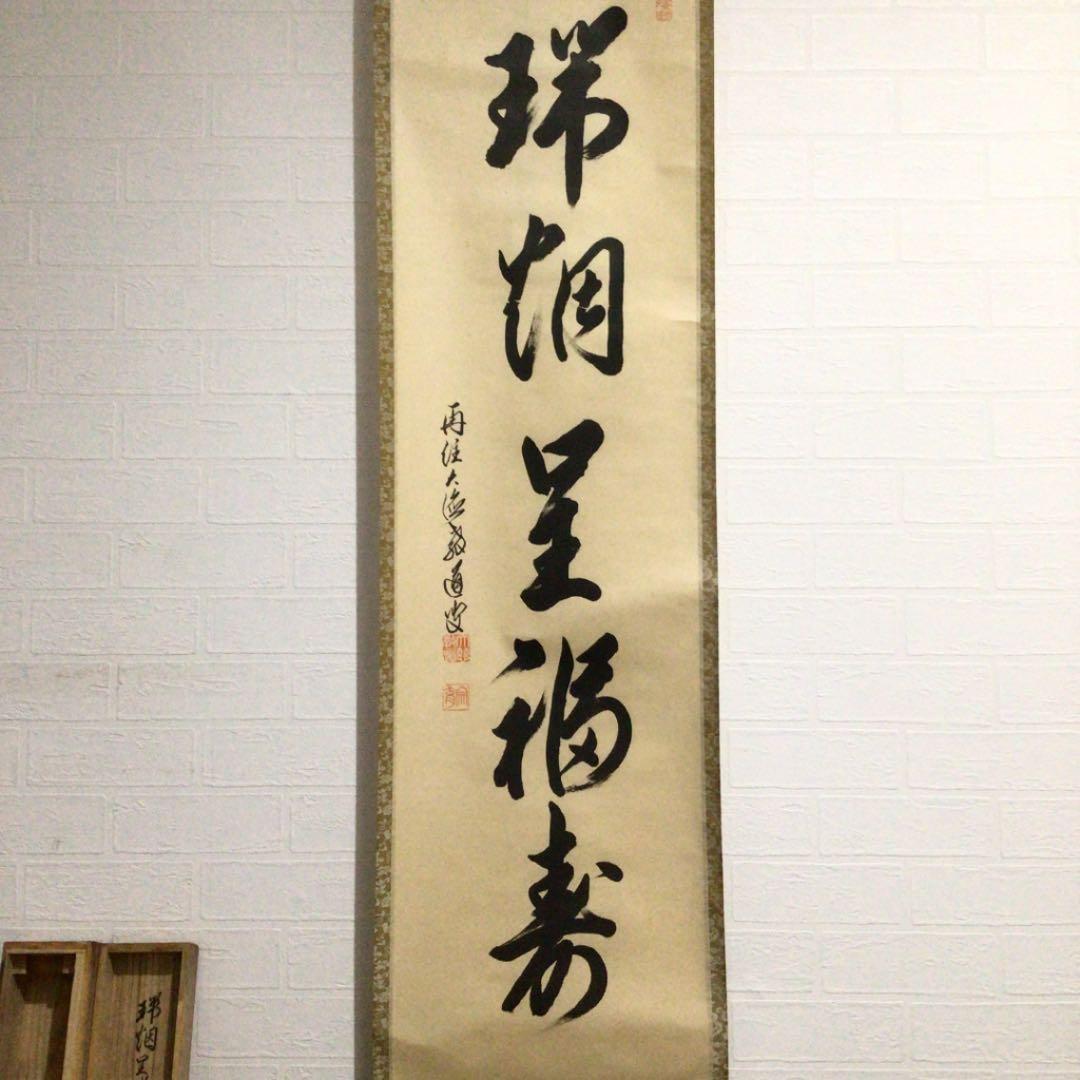 瑞烟呈福寿
再住大徳教道叟
瑞烟呈